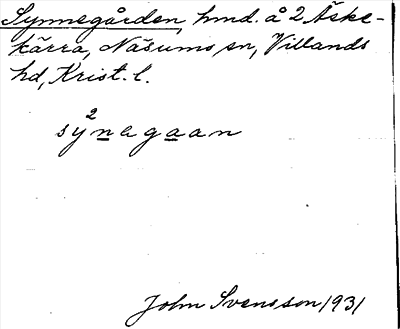 Synnegården, hmd. å 2 Äske-
kärra, Näsums sn, Villands
hd, Krist. l.
2
synagaan
John Svensson 1931